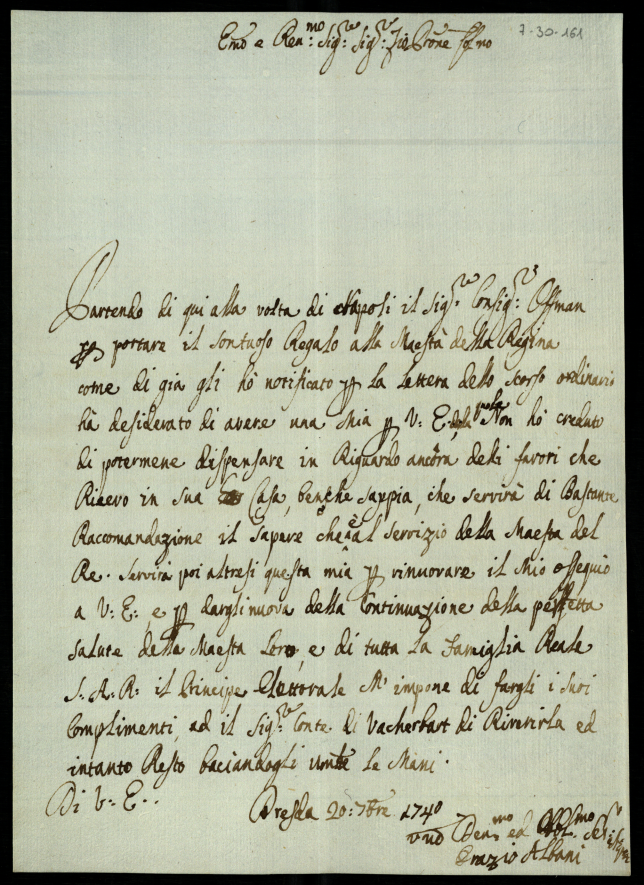 7-30-161
Em̃o e Ren:mo Sig:re Sig:re Zio Prõne
Partendo di qui alla volta di Napoli il Sig:re Consig:re Offman
p portare il sontuoso Regalo alla Maestà della Regina
come di gia gli hò notificato p la Lettera dello scorso ordinario
hà desiderato di avere una Mia p V: E: Non hò creduto
di potermene dispensare in Riguardo ancora deli favori che
Ricevo in sua Casa, benche sappia, che servirà di Bastante
Raccomandazione il sapere che è al servizio della Maesta del
Re. servirà poi altresi questa mia p rinuovare il Mio ossequio
a V: E:, e p dargli nuova della Continuazione della perfetta
salute della Maesta Loro, e di tutta la Famiglia Reale
S. A. R: il Principe Elettorale M' impone di fargli i suoi
Complimenti, ad il Sig:re Conte di Vacherbart di Riverirla ed
intanto Resto baciandogli le Mani.
Di V: E..
Dresda 20: 7bre 1740
Den:mo ed Obl:mo
Orazio Albani